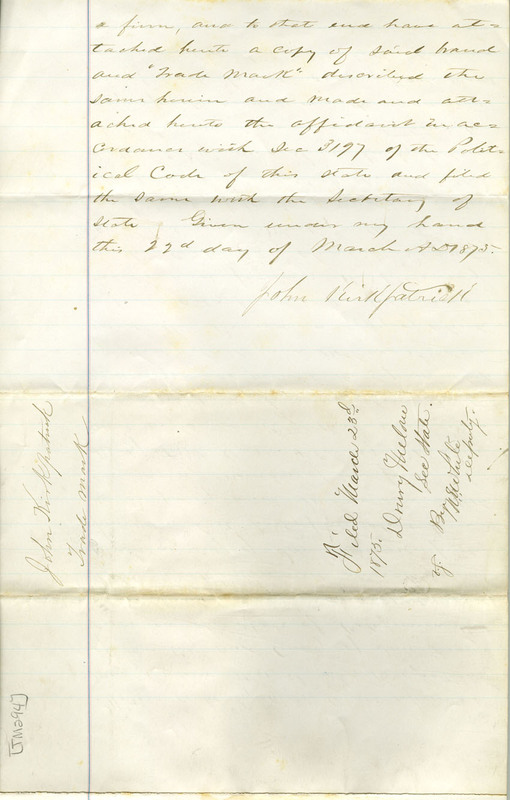 a firm, and to that end have at=
tached hereto a copy of said brand
and "Trade Mark" described the
same herein and made and att=
ached hereto the affidavit in ac=
cordance with Sec 3197 of the Polit=
ical Code of this State and filed
the same with the Secretary of
State Given under my hand
this 22d day of March AD 1875.
John Kirkpatrick
John Kirkpatrick
Trade Mark
Filed March 23d
1875.
Drury Melone
Sec State.
By
Deputy.
[TM294]